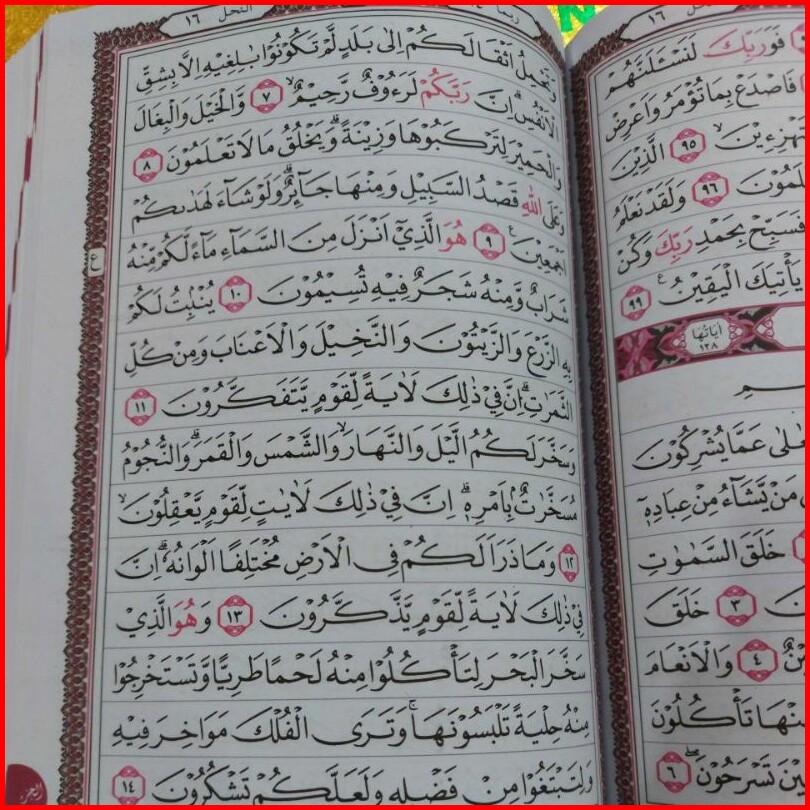 النحل ١٦
وَتَحْمِلُ اَثْقَالَكُمْ اِلٰى بَلَدٍ لَّمْ تَكُوْنُوْا بٰلِغِيْهِ اِلَّا بِشِقِّ
الْاَنْفُسِۗ اِنَّ رَبَّكُمْ لَرَءُوْفٌ رَّحِيْمٌۙ ٧ وَّالْخَيْلَ وَالْبِغَالَ
وَالْحَمِيْرَ لِتَرْكَبُوْهَا وَزِيْنَةًۗ وَيَخْلُقُ مَا لَا تَعْلَمُوْنَ ٨
وَعَلَى اللّٰهِ قَصْدُ السَّبِيْلِ وَمِنْهَا جَاۤىِٕرٌۗ وَلَوْ شَاۤءَ لَهَدٰىكُمْ
اَجْمَعِيْنَࣖ ٩ هُوَ الَّذِيْٓ اَنْزَلَ مِنَ السَّمَاۤءِ مَاۤءً لَّكُمْ مِّنْهُ
شَرَابٌ وَّمِنْهُ شَجَرٌ فِيْهِ تُسِيْمُوْنَ ١٠ يُنْۢبِتُ لَكُمْ
بِهِ الزَّرْعَ وَالزَّيْتُوْنَ وَالنَّخِيْلَ وَالْاَعْنَابَ وَمِنْ كُلِّ
الثَّمَرٰتِۗ اِنَّ فِيْ ذٰلِكَ لَاٰيَةً لِّقَوْمٍ يَّتَفَكَّرُوْنَ ١١
وَسَخَّرَ لَكُمُ الَّيْلَ وَالنَّهَارَۙ وَالشَّمْسَ وَالْقَمَرَۗ وَالنُّجُوْمُ
مُسَخَّرٰتٌۢ بِاَمْرِهٖۗ اِنَّ فِيْ ذٰلِكَ لَاٰيٰتٍ لِّقَوْمٍ يَّعْقِلُوْنَۙ
١٢ وَمَا ذَرَاَ لَكُمْ فِى الْاَرْضِ مُخْتَلِفًا اَلْوَانُهٗۗ اِنَّ
فِيْ ذٰلِكَ لَاٰيَةً لِّقَوْمٍ يَّذَّكَّرُوْنَ ١٣ وَهُوَ الَّذِيْ
سَخَّرَ الْبَحْرَ لِتَأْكُلُوْا مِنْهُ لَحْمًا طَرِيًّا وَّتَسْتَخْرِجُوْا
مِنْهُ حِلْيَةً تَلْبَسُوْنَهَاۚ وَتَرَى الْفُلْكَ مَوَاخِرَ فِيْهِ
وَلِتَبْتَغُوْا مِنْ فَضْلِهٖ وَلَعَلَّكُمْ تَشْكُرُوْنَ ١٤
ع
١٦
فَوَرَبِّكَ لَنَسْـَٔلَنَّهُمْ
فَاصْدَعْ بِمَا تُؤْمَرُ وَاَعْرِضْ
٩٥ الَّذِيْنَ
٩٦ وَلَقَدْ نَعْلَمُ
فَسَبِّحْ بِحَمْدِ رَبِّكَ وَكُنْ
يَأْتِيَكَ الْيَقِيْنُࣖ ٩٩
اٰيَاتُهَا
١٢٨
عَمَّا يُشْرِكُوْنَ
مَنْ يَّشَاۤءُ مِنْ عِبَادِهٖٓ
خَلَقَ السَّمٰوٰتِ
٣ خَلَقَ
٤ وَالْاَنْعَامَ
تَأْكُلُوْنَ
تَسْرَحُوْنَۖ ٦